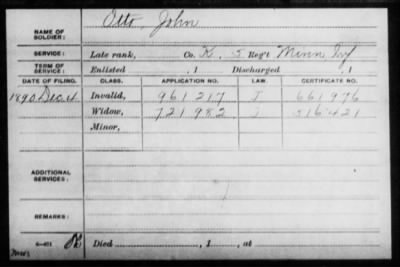 NAME OF SOLDIER: Otto, John
SERVICE: Late rank, Co. K, 5 Reg't Minn Inf
TERM OF SERVICE: Enlisted , 1 Discharged , 1
DATE OF FILING. CLASS. APPLICATION NO. LAW. CERTIFICATE NO.
1890 Dec. 4 Invalid, 961217 J 661976
Widow, 721982 516421
Minor,
ADDITIONAL SERVICES:
REMARKS:
Died , 1 , at